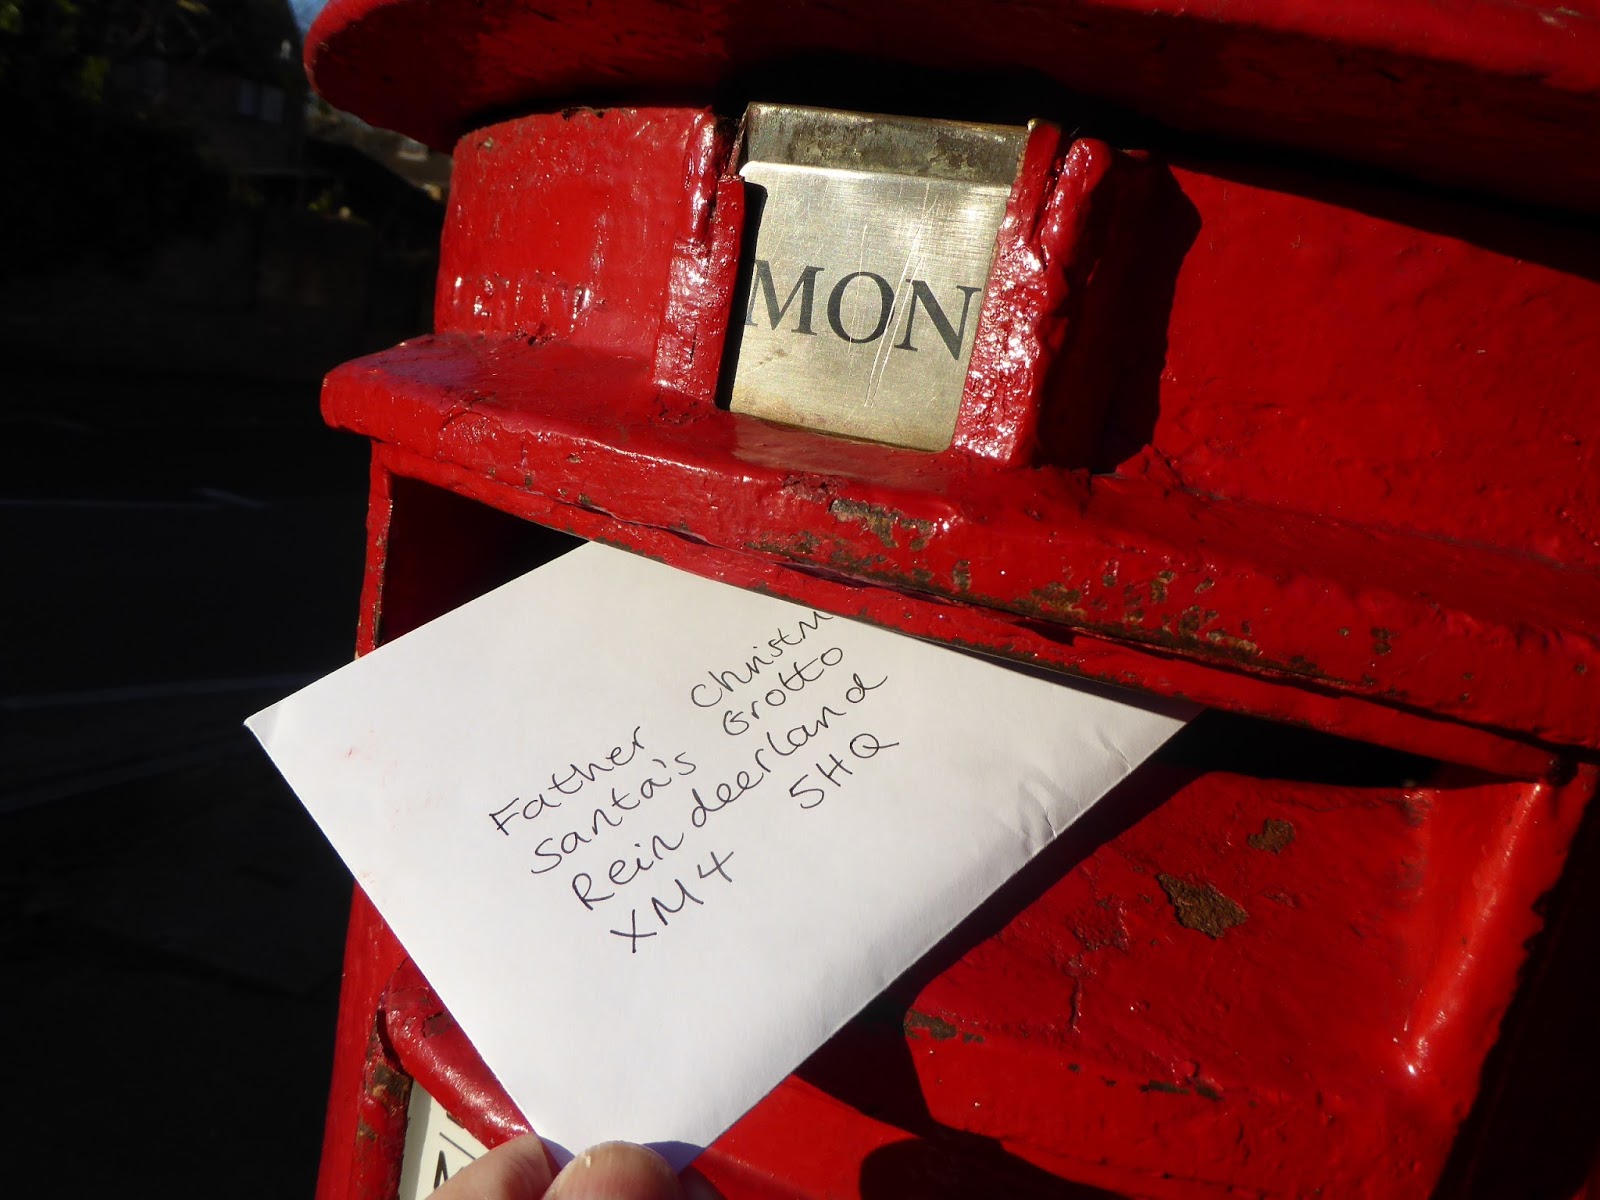 MON
Father Christm
Santa's Grotto
Reindeerland
XM4 5HQ